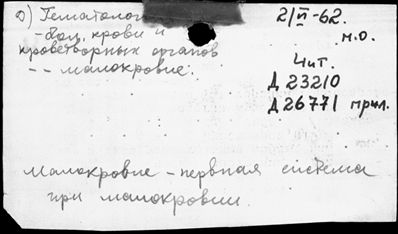 д) Гематолог
- бол. крови и
кроветворных органов
-- малокровие.
2/VI-62.
м.о.
Чит.
Д 23210
Д 26771 прил.
Малокровие - нервная система
при малокровии.